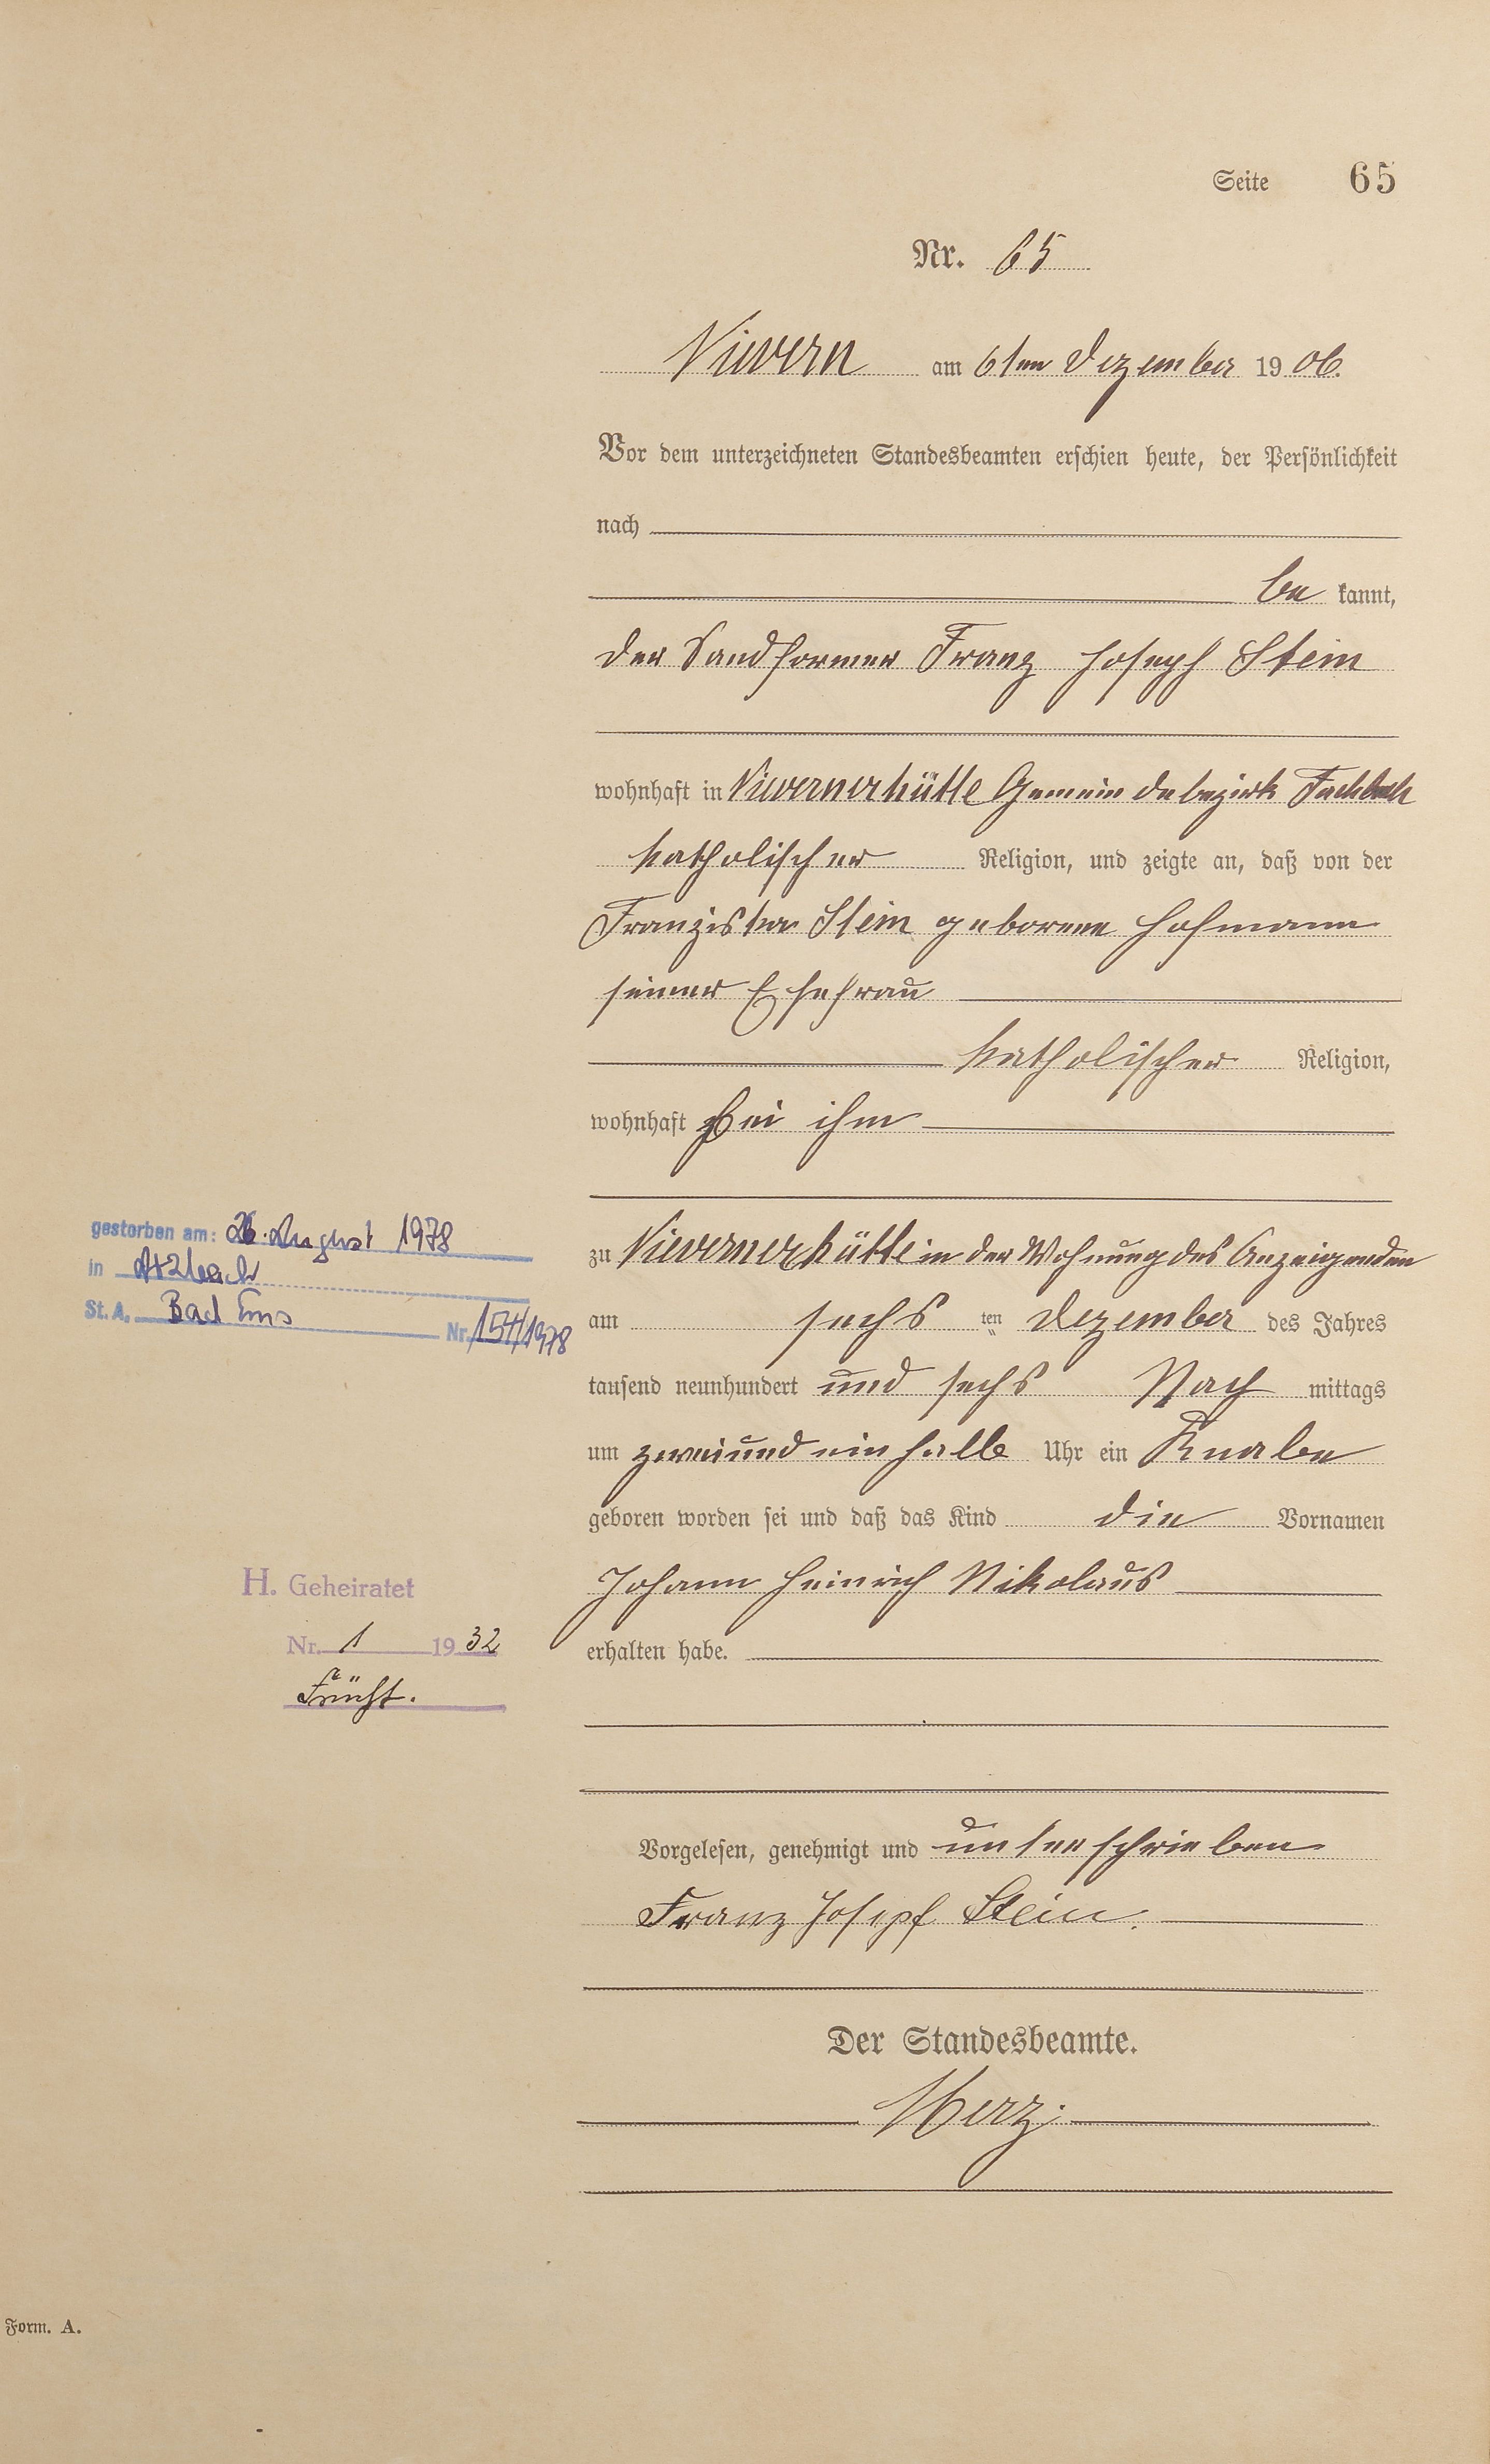 Seite 65
Nr. 65
Nievern am 6ten Dezember 1906.
Vor dem unterzeichneten Standesbeamten erschien heute, der Persönlichkeit
nach
be kannt,
der Sandformer Franz Joseph Stein
wohnhaft in Nievernerhütte Gemeindebezirk Fachbach
katholischer Religion, und zeigte an, daß von der
Franziska Stein geborene Hofmann
seiner Ehefrau
katholischer Religion,
wohnhaft bei ihm
zu Nievernerhütte in der Wohnung des Anzeigenden
am sechs ten Dezember des Jahres
tausend neunhundert und sechs Nach mittags
um zweiundeinhalb Uhr ein Knabe
geboren worden sei und daß das Kind die Vornamen
Johann Heinrich Nikolaus
erhalten habe.
Vorgelesen, genehmigt und unterschrieben
Franz Josepf Stein.
Der Standesbeamte.
Merz.
gestorben am: 26. August 1978
in Arzbach
St. A. Bad Ems Nr. 154/1978
H. Geheiratet
Nr. 1 1932
Frücht.
Form. A.